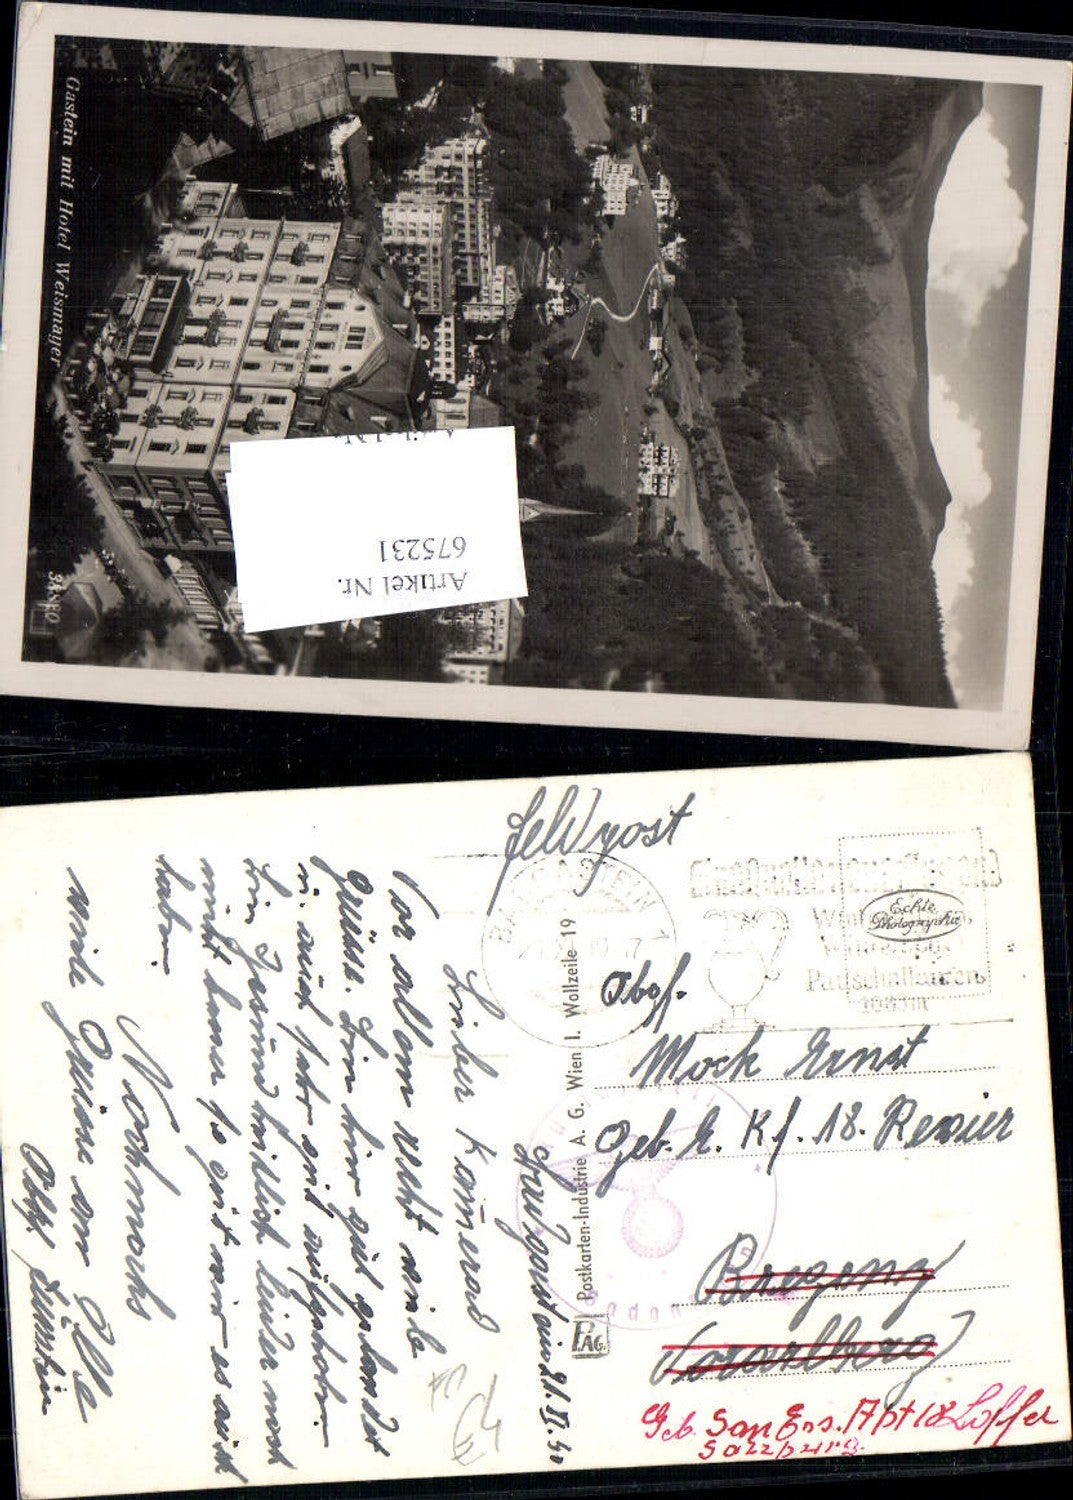 Gastein mit Hotel Weismayer
Artikel Nr.
Artikel Nr.
675231
Feldpost
BADGASTEIN
1
Pauschalkuren
Echte
Photographie
Postkarten-Industrie A. G. Wien I. Wollzeile 19
PAG.
Obgf.
Mock Ernst
Geb. E. Kf. 18. Revier
Bregenz
Vorarlberg
Geb. San Ers. Apt 18 Loffer
Salzburg.
Lieber Kamerad
Vor allem recht viele
Grüsse. Bin hier gut gelandet
u. auch sehr gut aufgehoben.
Bin gesundheitlich leider noch
nicht besser so gut wir es auch
haben.
Nochmals
viele Grüsse an Alle